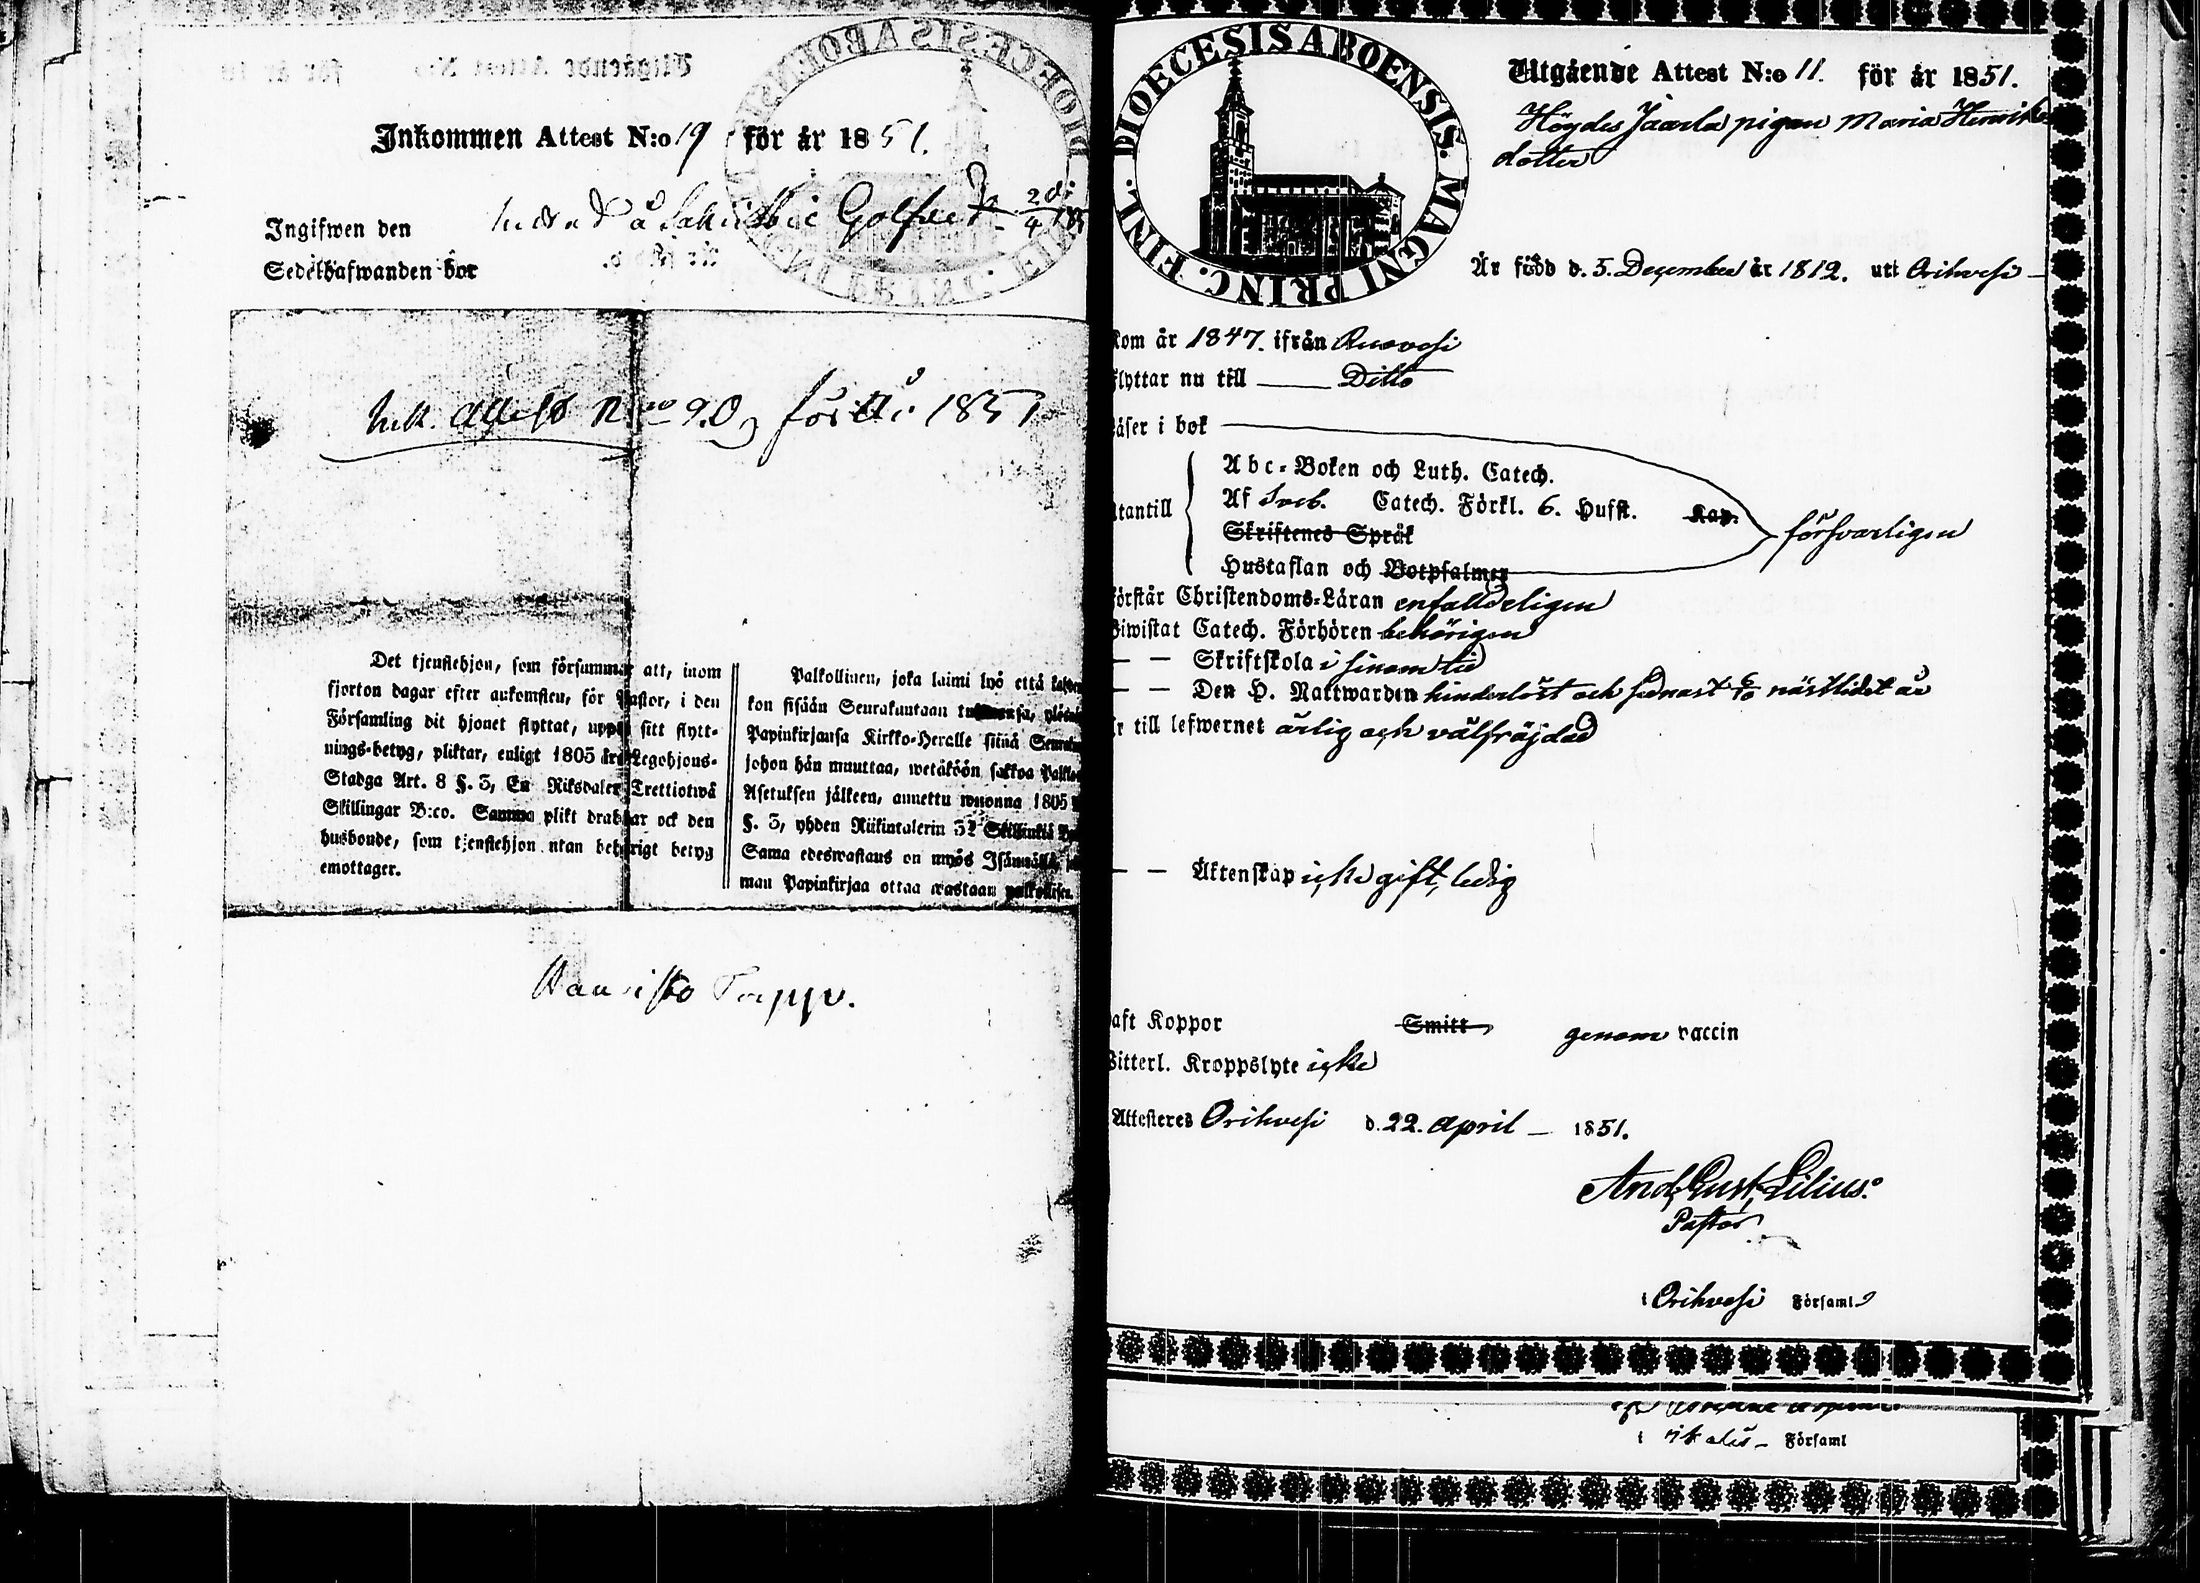 Inkommen Attest N:o 19 för år 1851.
Ingifwen den
Sedelhafwanden bor
Ink. Attest N:o 20, för år 1851
Det tjenstehjon, som försummar att, inom
fjorton dagar efter ankomsten, för Pastor, i den
Församling dit hjonet flyttat, uppte sitt flytt-
nings-betyg, pliktar, enligt 1805 års Legohjons-
Stadga Art. 8 §. 3, En Riksdaler Trettiotwå
Skillingar B:co. Samma plikt drabbar ock den
husbonde, som tjenstehjon utan behörigt betyg
emottager.
Palkollinen, joka laimi lyö että
kon sisään Seurakuntaan
Papinkirjansa Kirkko-Heralle siinä
johon hän muuttaa, wetäköön sakkoa
Asetuksen jälkeen, annettu wuonna 1805
§. 3, yhden Riikintalerin 32 Skillinkiä
Sama edeswastaus on myös Isännällä,
man Papinkirjaa ottaa wastaan palkollisen.
DIOECESIS ABOENSIS. MAGNI PRINC. FINL.
Utgående Attest N:o 11. för år 1851.
Höydes Jaarla pigan Maria Henriks
dotter
Är född d. 5. December år 1812. uti Orihvesi
Kom år 1847. ifrån Ruovesi
flyttar nu till Ditto
Läser i bok
Utantill
Abc-Boken och Luth. Catech.
Af Sveb. Catech. Förkl. 6. Hufst. Kap.
Skriftenes Språk
Hustaflan och Botpsalmer
försvarligen
Förstår Christendoms-Läran enfalldeligen
Biwistat Catech. Förhören behörigen
— — Skriftskola i sinom tid
— — Den H. Nattwarden hinderlöst och sednast näst lidet år
Är till lefwernet ärlig och välfräjdad
— — Äktenskap icke gift, ledig
Haft Koppor Smitt genom vaccin
Witterl. Kroppslyte icke
Attesteres Orihvesi d. 22. April — 1851.
And. Gust. Lilius.
Pastor
i Orihvesi Församl
i Församl